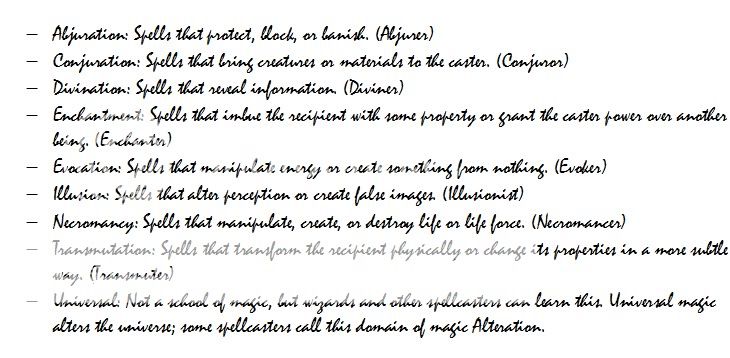 – Abjuration: Spells that protect, block, or banish. (Abjurer)
– Conjuration: Spells that bring creatures or materials to the caster. (Conjuror)
– Divination: Spells that reveal information. (Diviner)
– Enchantment: Spells that imbue the recipient with some property or grant the caster power over another
being. (Enchanter)
– Evocation: Spells that manipulate energy or create something from nothing. (Evoker)
– Illusion: Spells that alter perception or create false images. (Illusionist)
– Necromancy: Spells that manipulate, create, or destroy life or life force. (Necromancer)
– Transmutation: Spells that transform the recipient physically or change its properties in a more subtle
way. (Transmuter)
– Universal: Not a school of magic, but wizards and other spellcasters can learn this. Universal magic
alters the universe; some spellcasters call this domain of magic Alteration.